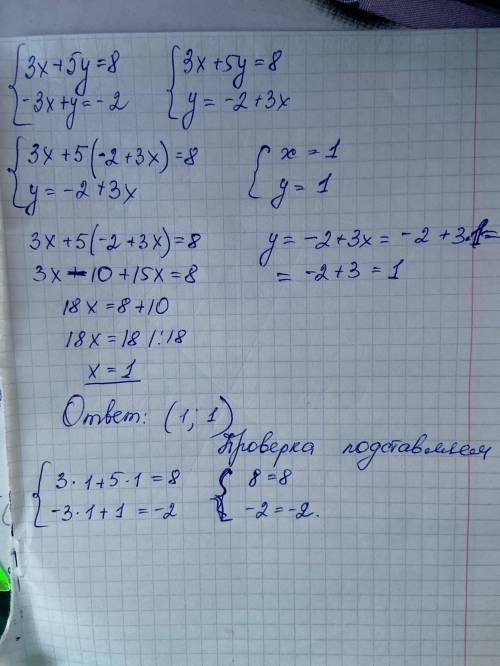 3x+5y=8 3x+5y=8
-3x+y=-2 y=-2+3x
3x+5(-2+3x)=8 x=1
y=-2+3x y=1
3x+5(-2+3x)=8 y=-2+3x=-2+3·1=
3x-10+15x=8 =-2+3=1
18x=8+10
18x=18 |:18
x=1
Ответ: (1; 1)
Проверка подставляем
3·1+5·1=8 8=8
-3·1+1=-2 -2=-2.